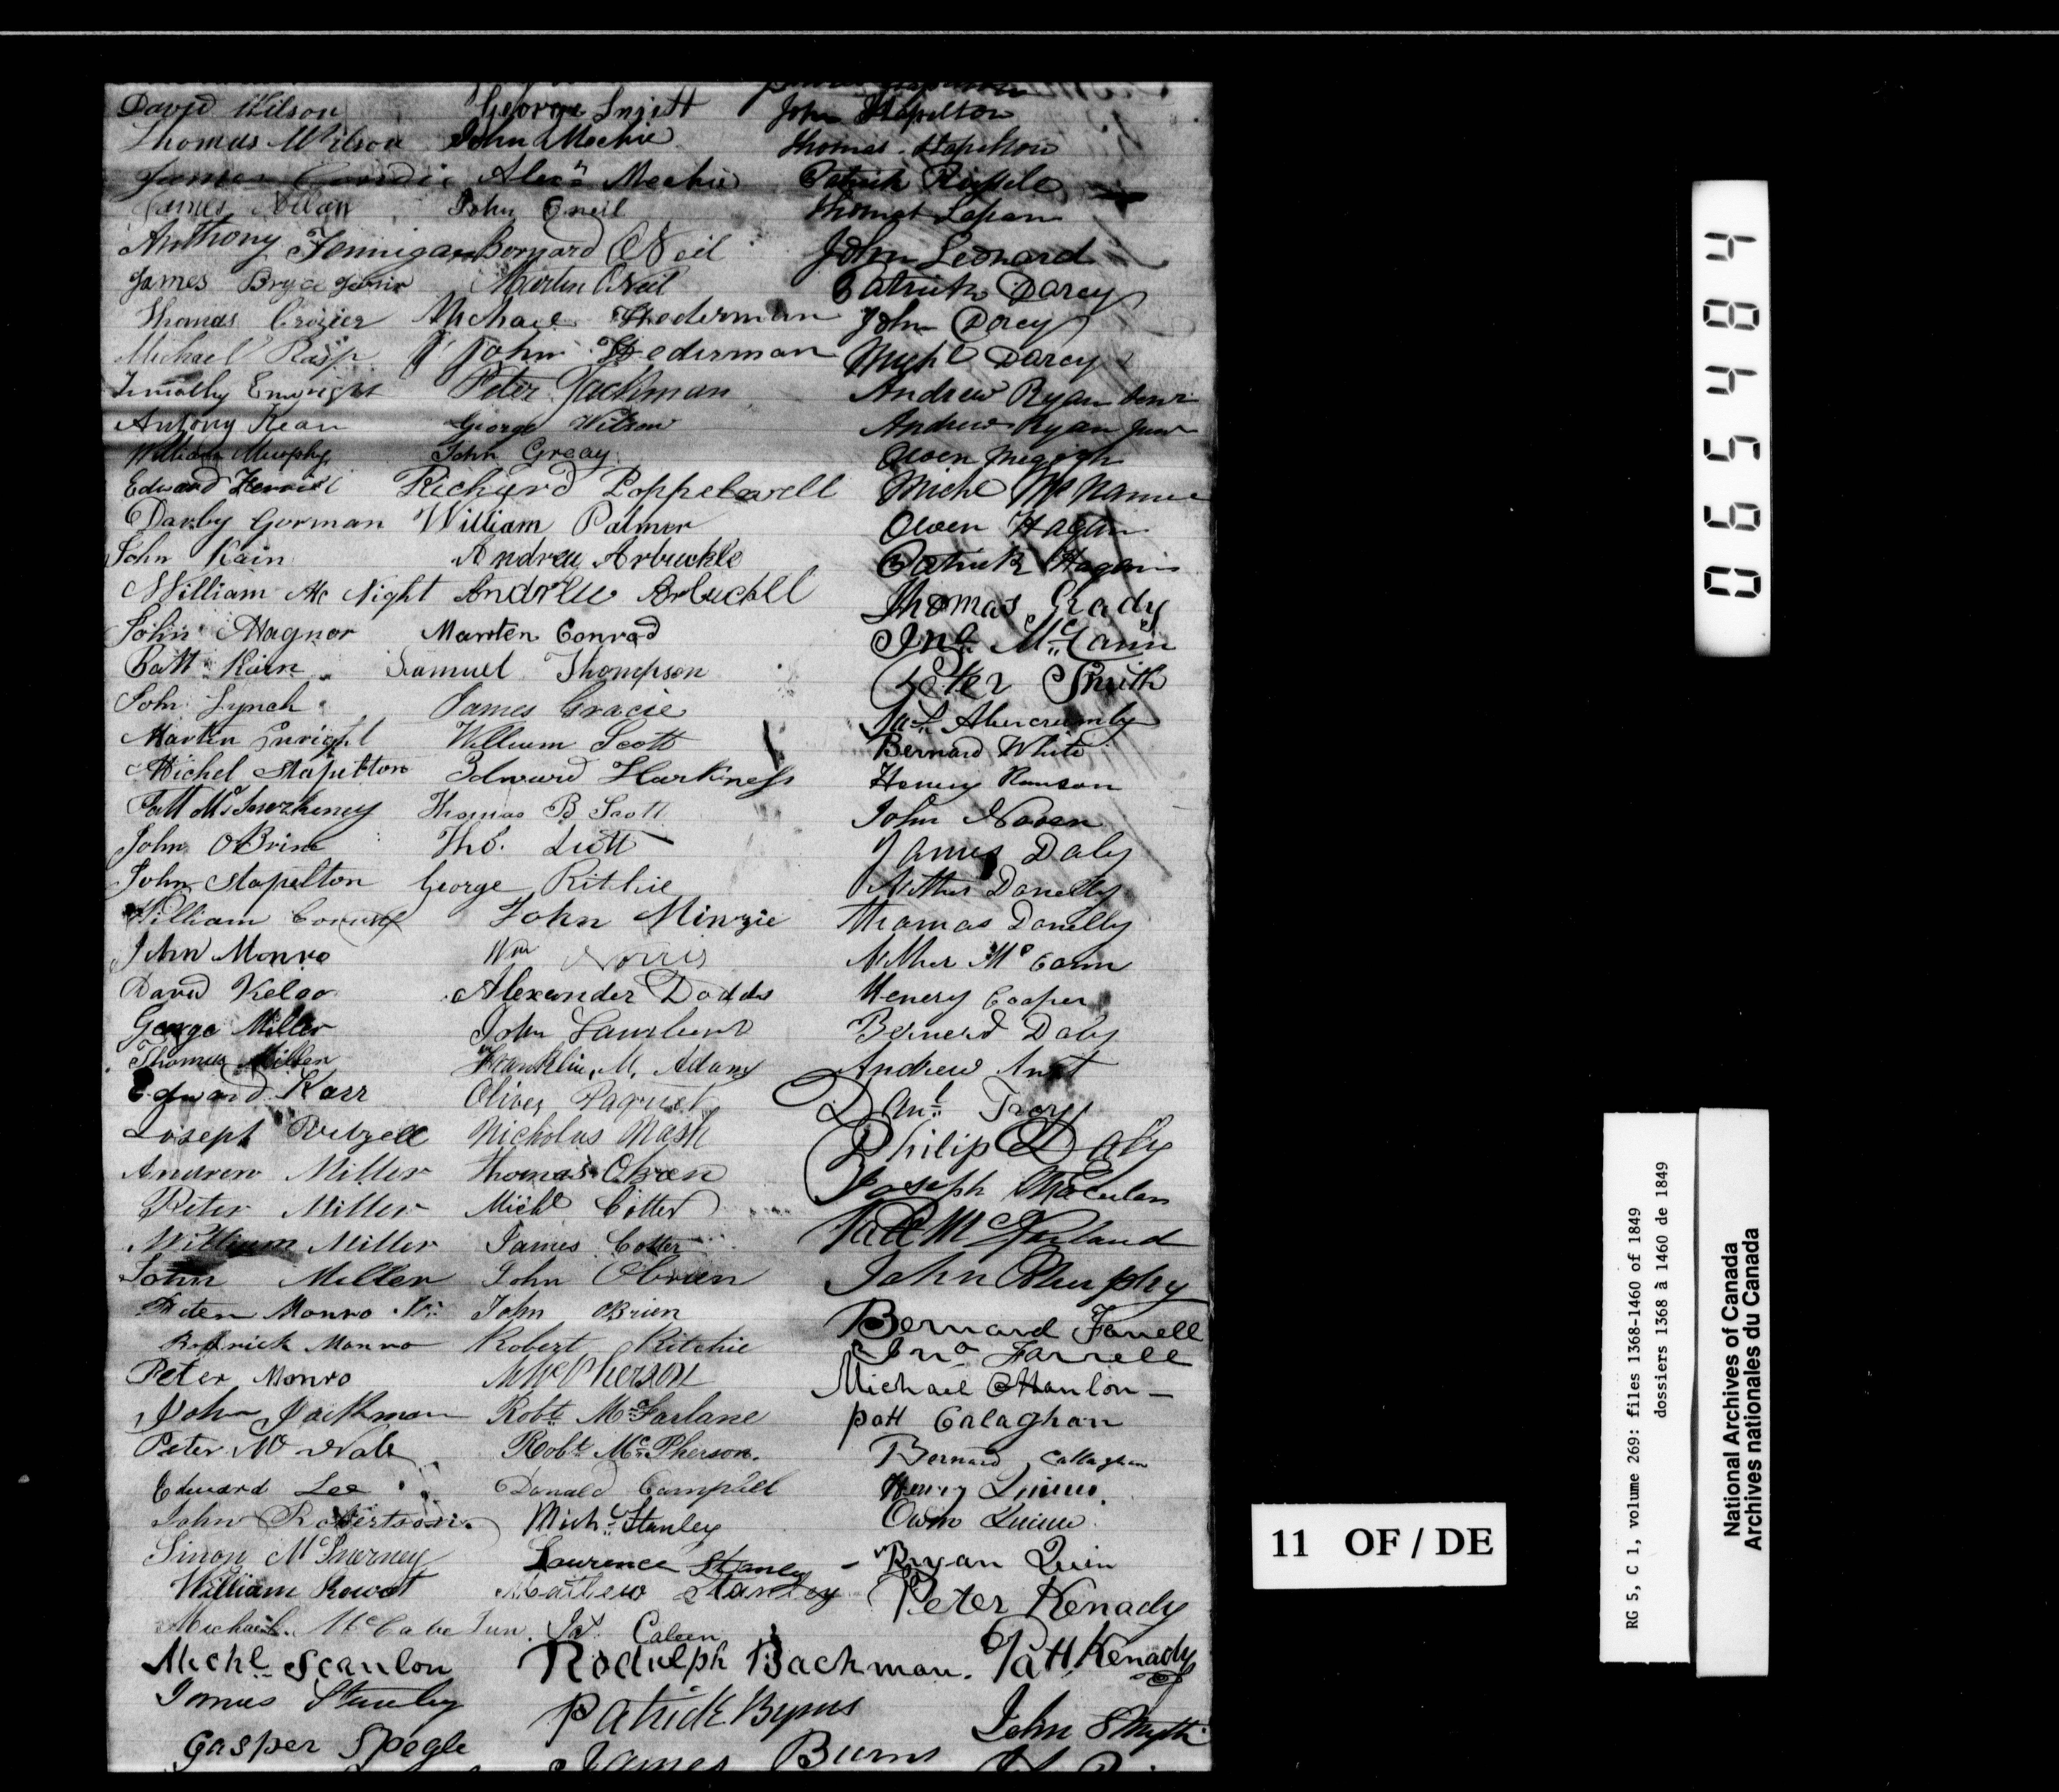 David Wilson
Thomas Wilson
James
James Nilan
Anthony Fennigan
James Bryce Junir
Thomas Crozier
Michael Rasp
Timothy Enwright
Antony Kean
William Murphy
Edward
Darby Gorman
John Kain
William Mc Night
John Hagnor
Patt Kain
John Lynch
Martin Enright
Michel Stapelton
Patt
John OBrine
John Stapelton
William
John Monro
David Kelso
George Miller
Thomas Miller
Edward Karr
Joseph Wetzell
Andrew Miller
Peter Miller
William Miller
John Miller
Peter Monro Sr.
Rodrick Monro
Peter Monro
John Jackman
Peter Mc Nab
Edward Lee
John Robertson
Simon McInerney
William Rowat
Michael McCabe Jun.
Michl Scanlon
James Stanley
Gasper Spegle
George
John Mechie
Alexn Mechie
John Oneil
Bornard ONeil
Martin ONeil
Michael Hederman
John Hederman
Peter Jackman
George Wilson
John Greay
Richard Poppelwell
William Palmer
Andrew Arbuckle
Andrew Arbuckell
Marten Conrad
Samuel Thompson
James Gracie
William Scott
Edward Harkness
Thomas B Scott
Tho. Scott
George Ritchie
John Minzie
Wm Norris
Alexander Dodds
John Lambert
Franklin M. Adams
Oliver Paquet
Nicholas Mash
Thomas Obrien
Michl Cotter
James Cotter
John Obrien
John OBrien
Robert Ritchie
McPherson
Robt McFarlane
Robt McPherson.
Donald Campbel
Michl Stanley
Laurence Stanley
Mathew Stanley
Jas. Caleen
Rodulph Bachman.
Patrick Byrns
James Burns
John Stapelton
Thomas Stapelton
Patrick Russele
Thomas Lapan
John Leonard
Patrick Darcy
John Darcy
Michl Darcy
Andrew Ryan Senr
Andrew Ryan Junr
Owen Megogh
Michl McNamee
Owen Hagan
Patrick Hagan
Thomas Grady
Jno. McCann
Peter Smith
Jas. Abercrumby
Bernard White
Henry Hanson
John Noven
James Daly
Arther Donelly
Thomas Donelly
Arther McCann
Henery Cooper
Bernerd Daly
Andrew
Danl. Troy
Philip Daly
Joseph
Patt McFarland
John Murphy
Bernard Farrell
Jno Farrell
Michael OHanlon
patt Calaghan
Bernard Callaghan
Henry Quinn.
Owin Quinn
Bryan Quin
Peter Kenady
Patt. Kenady
John Smyth
0654484
11 OF / DE
RG 5, C 1, volume 269: files 1368-1460 of 1849
dossiers 1368 à 1460 de 1849
National Archives of Canada
Archives nationales du Canada